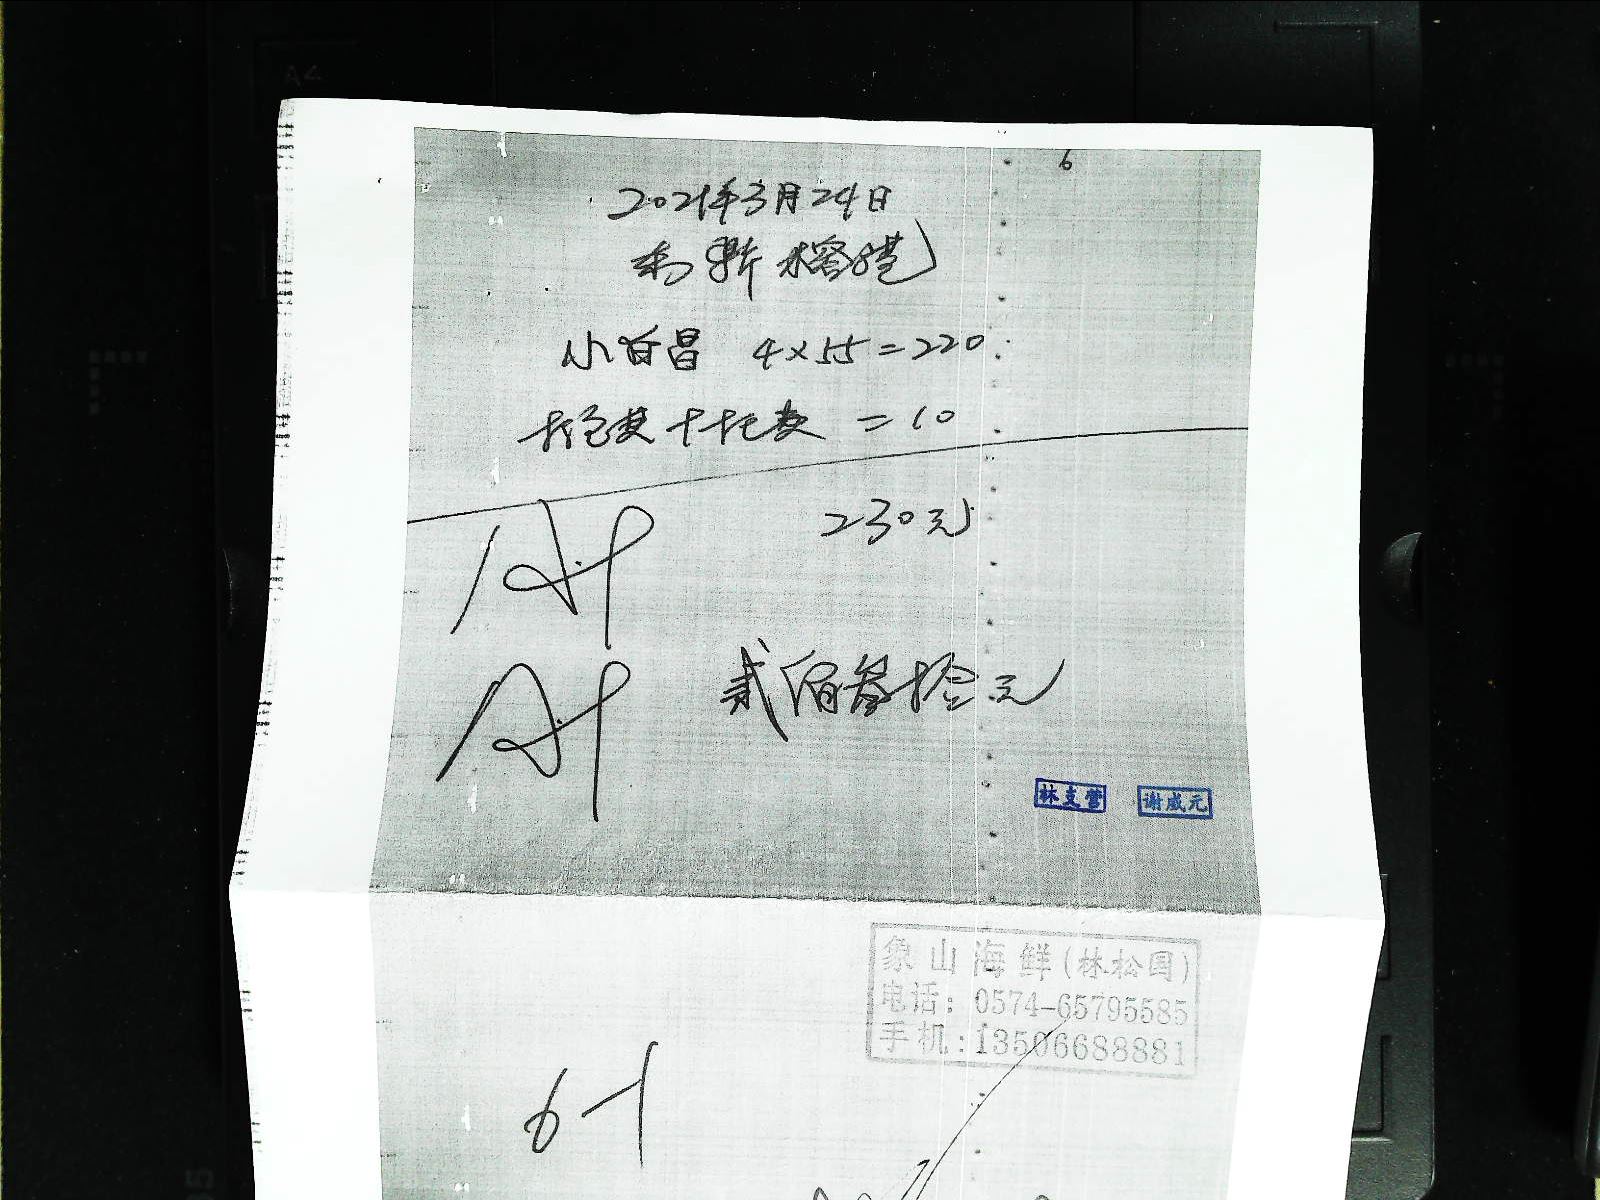 6
2021年3月24日
小白昌 4×55=220
打包费+托费 =10
230元
贰佰叁拾元
林支营 谢威元
象山海鲜(林松国)
电话: 0574-65795585
手机:13506688881
6-1
A4